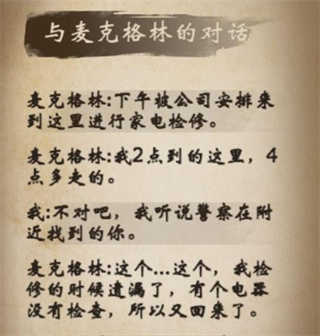 与麦克格林的对话
麦克格林:下午被公司安排来
到这里进行家电检修。
麦克格林:我2点到的这里，4
点多走的。
我:不对吧，我听说警察在附
近找到的你。
麦克格林:这个...这个，我检
修的时候遗漏了，有个电器
没有检查，所以又回来了。